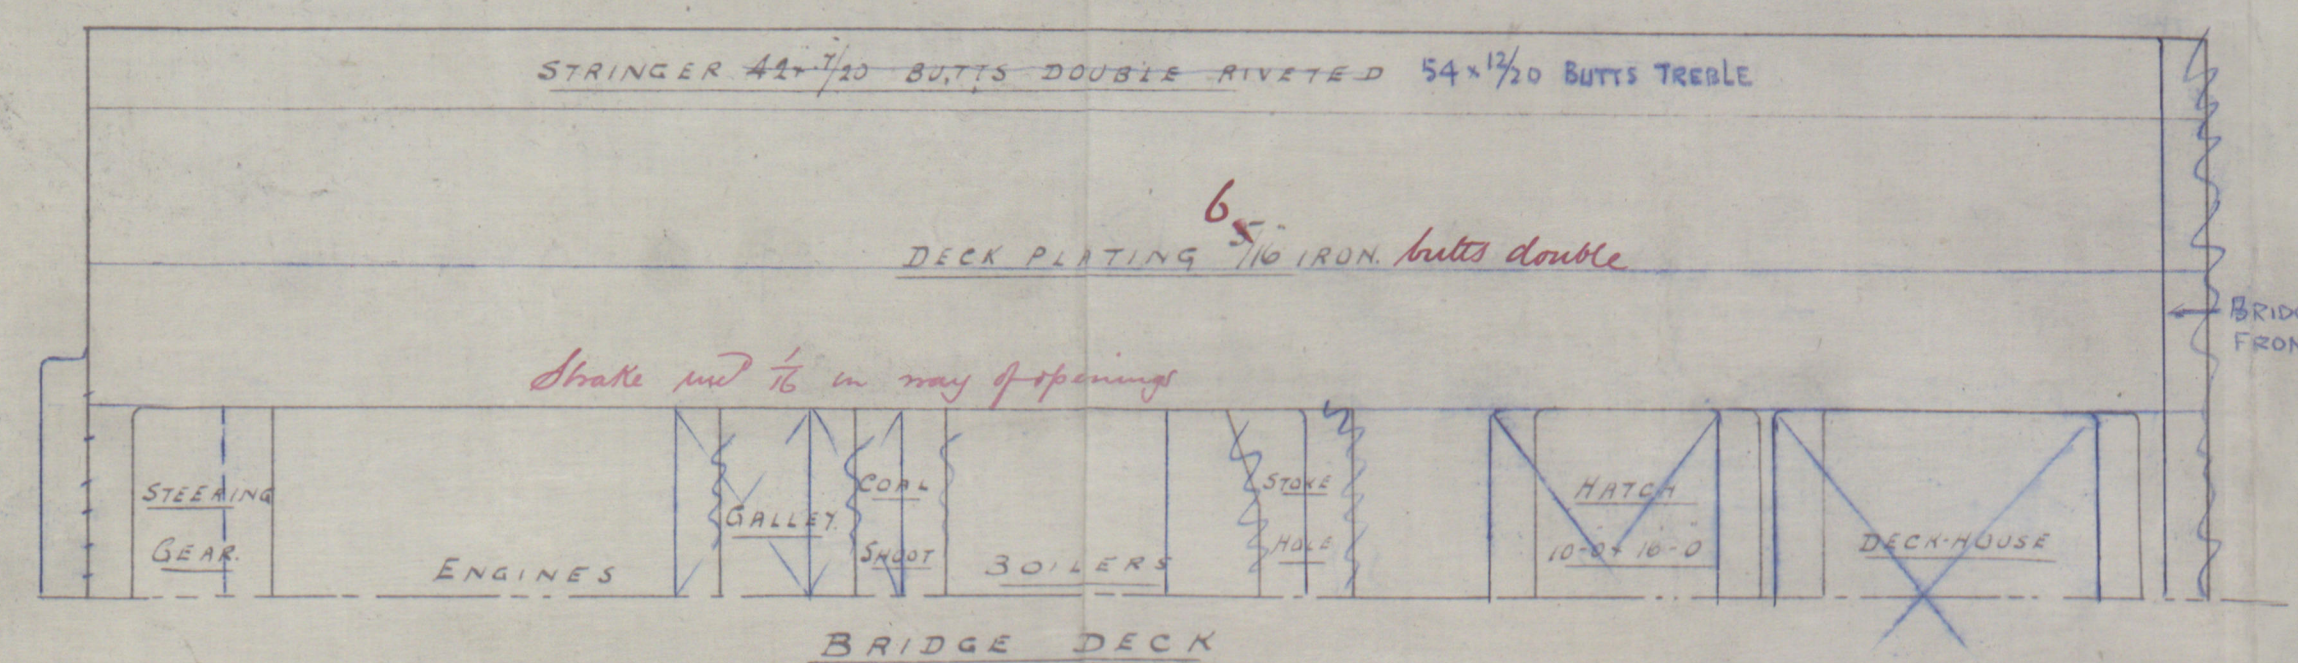 STRINGER 42 × 7/20 BUTTS DOUBLE RIVETED 54 × 12/20 BUTTS TREBLE
6
DECK PLATING 5/16 IRON. butts double
BRIDG
FRON
Strake incd 1/16 in way of openings
STEERING
GEAR.
ENGINES
GALLEY.
COAL
SHOOT
BOILERS
STOKE
HOLE
HATCH
10-0 × 16-0
DECK-HOUSE
BRIDGE DECK